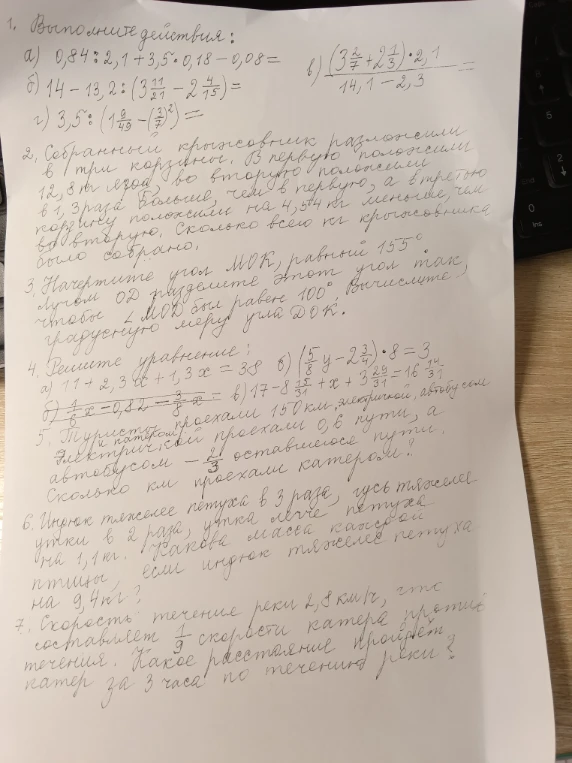 1. Выполните действия:
а) 0,84 : 2,1 + 3,5 · 0,18 - 0,08 =
в) (3 2/7 + 2 1/3) · 2,1 / 14,1 - 2,3 =
б) 14 - 13,2 : (3 11/21 - 2 4/15) =
г) 3,5 : (1 9/49 - (3/7)²) =
2. Собранный крыжовник разложили
в три корзины. В первую положили
12,8 кг ягод, во вторую положили
в 1,3 раза больше, чем в первую, а в третью
корзину положили на 4,54 кг меньше, чем
во вторую. Сколько всего кг крыжовника
было собрано.
3. Начертите угол МОК, равный 155°
Лучом ОD разделите этот угол так,
чтобы ∠МОD был равен 100°, Вычислите,
градусную меру угла DОК.
4. Решите уравнение:
а) 11 + 2,3х + 1,3х = 38 б) (5/8 у - 2 3/4) · 8 = 3
б) 1/6 х - 0,82 = 3/8 х в) 17 - 8 15/31 + х + 3 29/31 = 16 14/31
5. Туристы проехали 150 км, электричкой, автобусом
и катером.
Электричкой проехали 0,6 пути, а
автобусом - 2/3 оставшегося пути.
Сколько км проехали катером?
6. Индюк тяжелее петуха в 3 раза, гусь тяжелее
утки в 2 раза, утка легче петуха
на 1,1 кг. Какова масса каждой
птицы, если индюк тяжелее петуха
на 9,4 кг?
7. Скорость течение реки 2,8 км/ч, что
составляет 1/9 скорости катера против
течения. Какое расстояние пройдёт
катер за 3 часа по течению реки?